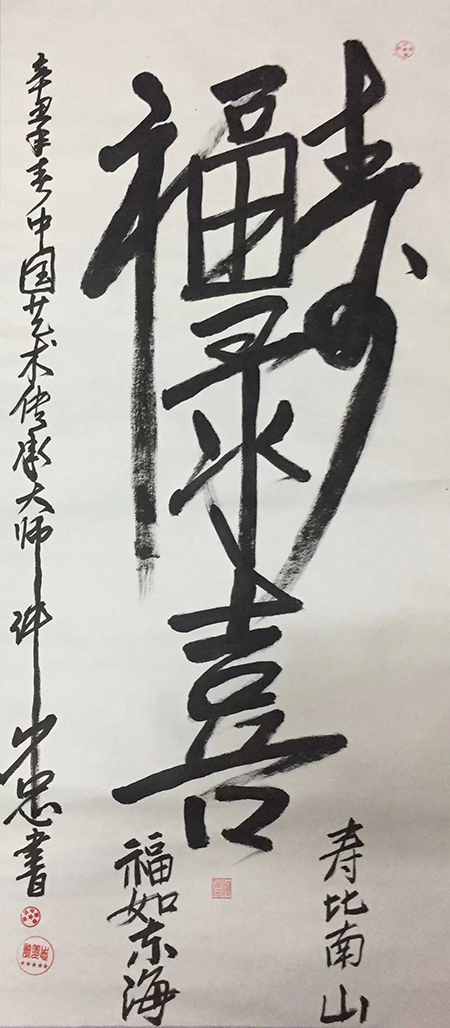 福禄寿喜
福如东海
寿比南山
辛丑年春中国艺术传承大师许忠書